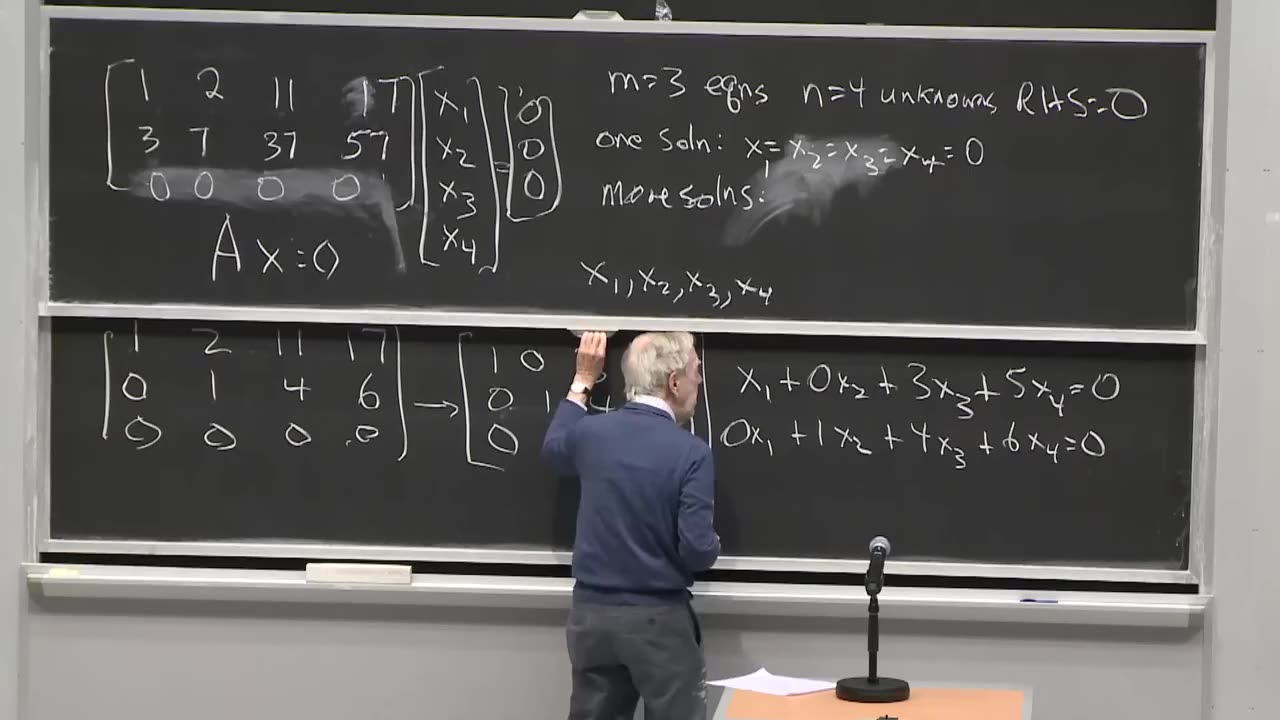 1 2 11 17 x₁ 0
3 7 37 57 x₂ = 0
0 0 0 0 x₃ 0
x₄
A x = 0
m=3 eqns n=4 unknowns RHS=0
one soln: x₁=x₂=x₃=x₄=0
more solns:
x₁,x₂,x₃,x₄
1 2 11 17
0 1 4 6
0 0 0 0
→
1 0
0 1 4
0
x₁+0x₂+3x₃+5x₄=0
0x₁+1x₂+4x₃+6x₄=0